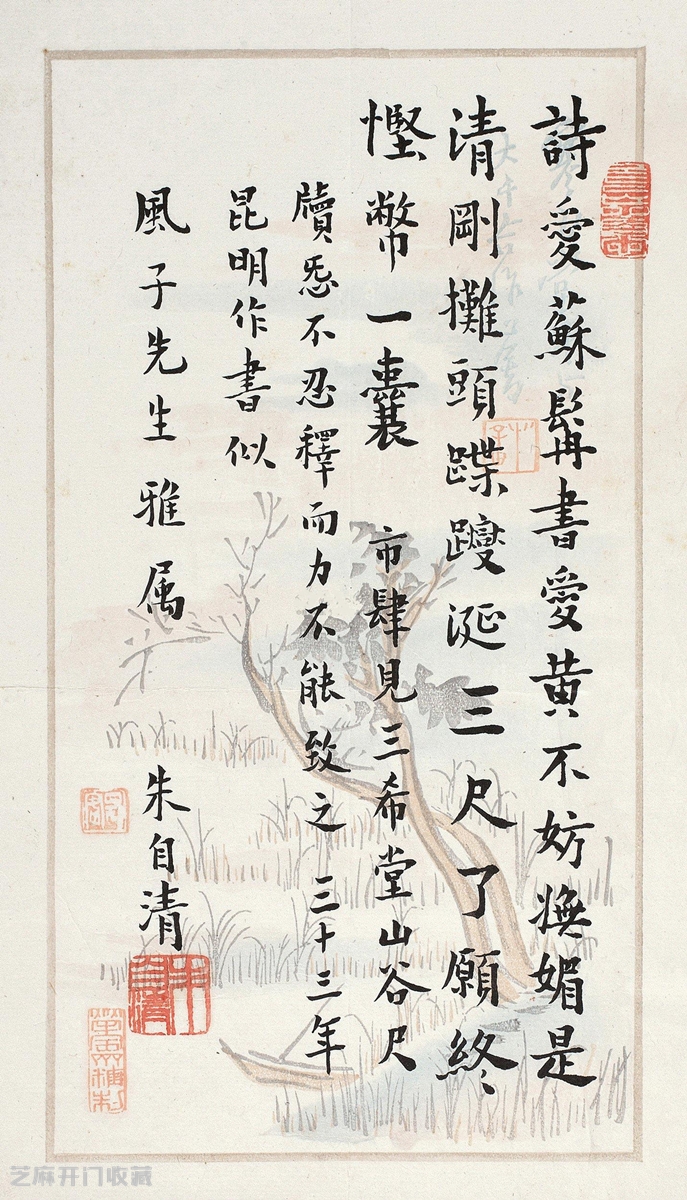 詩愛蘇髯書愛黄不妨娬媚是
清剛攤頭蹀躞涎三尺了願終
慳幣一囊 市肆見三希堂山谷尺
牘愛不忍釋而力不能致之 三十三年
昆明作書似
風子先生雅属
朱自清
朱自清
芝麻开门收藏